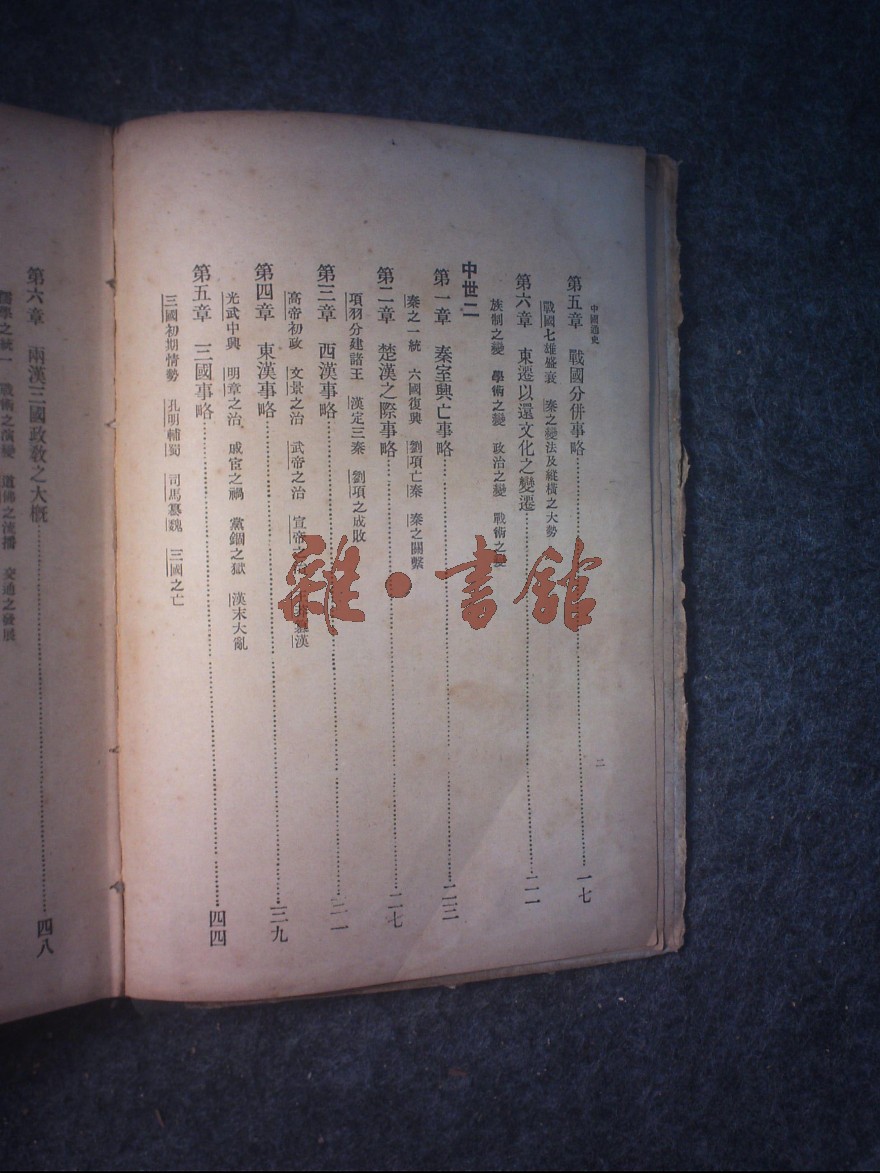 中國通史
二
第五章 戰國分併事略……一七
戰國七雄盛衰 秦之變法及縱橫之大勢
第六章 東遷以還文化之變遷……二一
族制之變 學術之變 政治之變 戰術之變
中世二
第一章 秦室興亡事略……二三
秦之一統 六國復興 劉項亡秦 秦之關繫
第二章 楚漢之際事略……二七
項羽分建諸王 漢定三秦 劉項之成敗
第三章 西漢事略……三一
高帝初政 文景之治 武帝之治 宣帝之 漢
第四章 東漢事略……三九
光武中興 明章之治 戚宦之禍 黨錮之獄 漢末大亂
第五章 三國事略……四四
三國初期情勢 孔明輔蜀 司馬篡魏 三國之亡
第六章 兩漢三國政教之大概……四八
儒學之統一 戰術之演變 道佛之流播 交通之發展
雜·書館